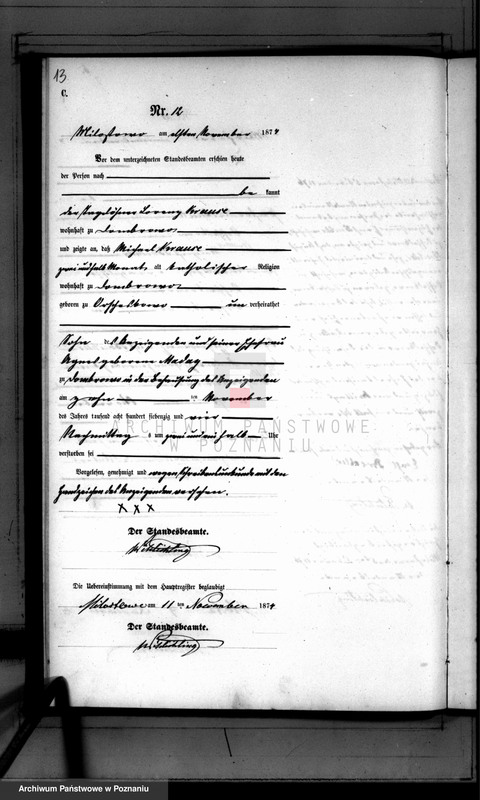 13
C.
Nr. 12
Miloslawo am elften November 1874
Vor dem unterzeichneten Standesbeamten erschien heute
der Person nach
be kannt
der Tagelöhner Lorenz Krause
wohnhaft zu Dombrowo
und zeigte an, daß Michael Krause
zwei und halb Monat alt katholischer Religion
wohnhaft zu Dombrowo
geboren zu un verheirathet
Sohn des Anzeigenden und seiner Ehefrau
Agnes geborenen
zu Dombrowo in der Behausung des Anzeigenden
am zehn ten November
des Jahres tausend acht hundert siebenzig und vier
Nachmittag s um zwei und halb Uhr
verstorben sei
Vorgelesen, genehmigt und wegen Schreibensunkunde mit den
Handzeichen des Anzeigenden versehen.
XXX
Der Standesbeamte.
Die Uebereinstimmung mit dem Hauptregister beglaubigt
am 11 ten November 1874
Der Standesbeamte.
ARCHIWUM PAŃSTWOWE
W POZNANIU
Archiwum Państwowe w Poznaniu